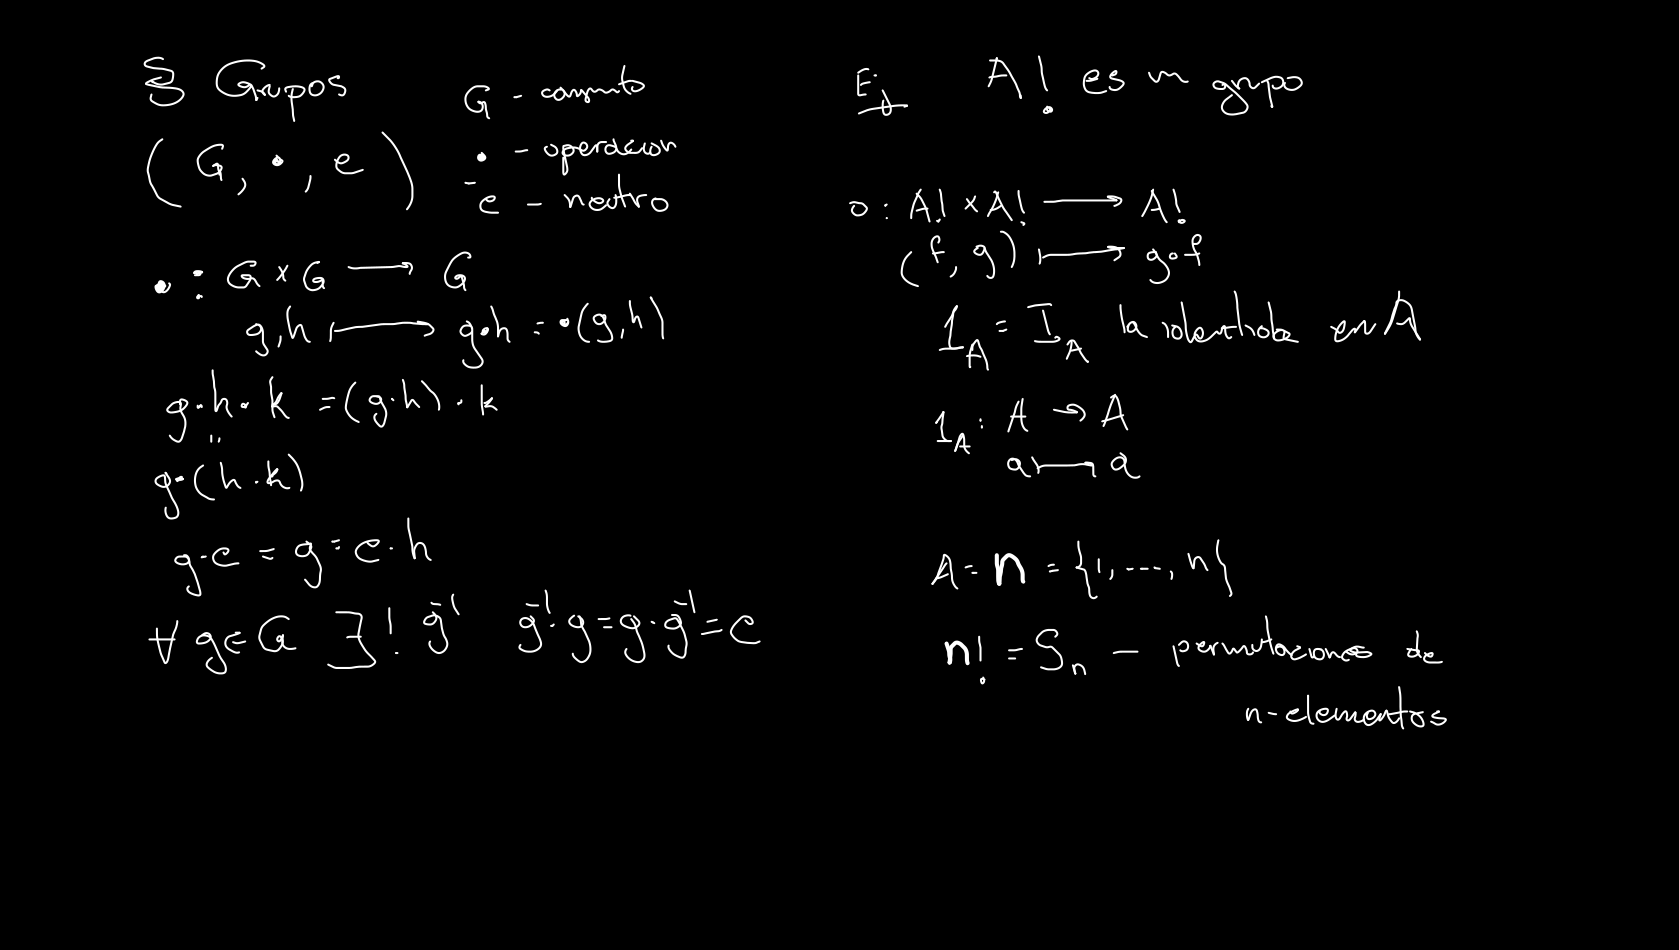 § Grupos
G - conjunto
(G, •, e)
• - operacion
e - neutro
• : G × G ⟶ G
g, h ⟼ g•h = •(g, h)
g·h·k = (g·h)·k
"
g·(h·k)
g·e = g = e·h
∀ g∈G ∃! g⁻¹ g⁻¹·g = g·g⁻¹ = e
Ej A! es un grupo
o : A! × A! ⟶ A!
(f, g) ⟼ g∘f
1_A = I_A la identidad en A
1_A : A → A
a ⟼ a
A = n = {1, ..., n}
n! = S_n — permutaciones de
n-elementos